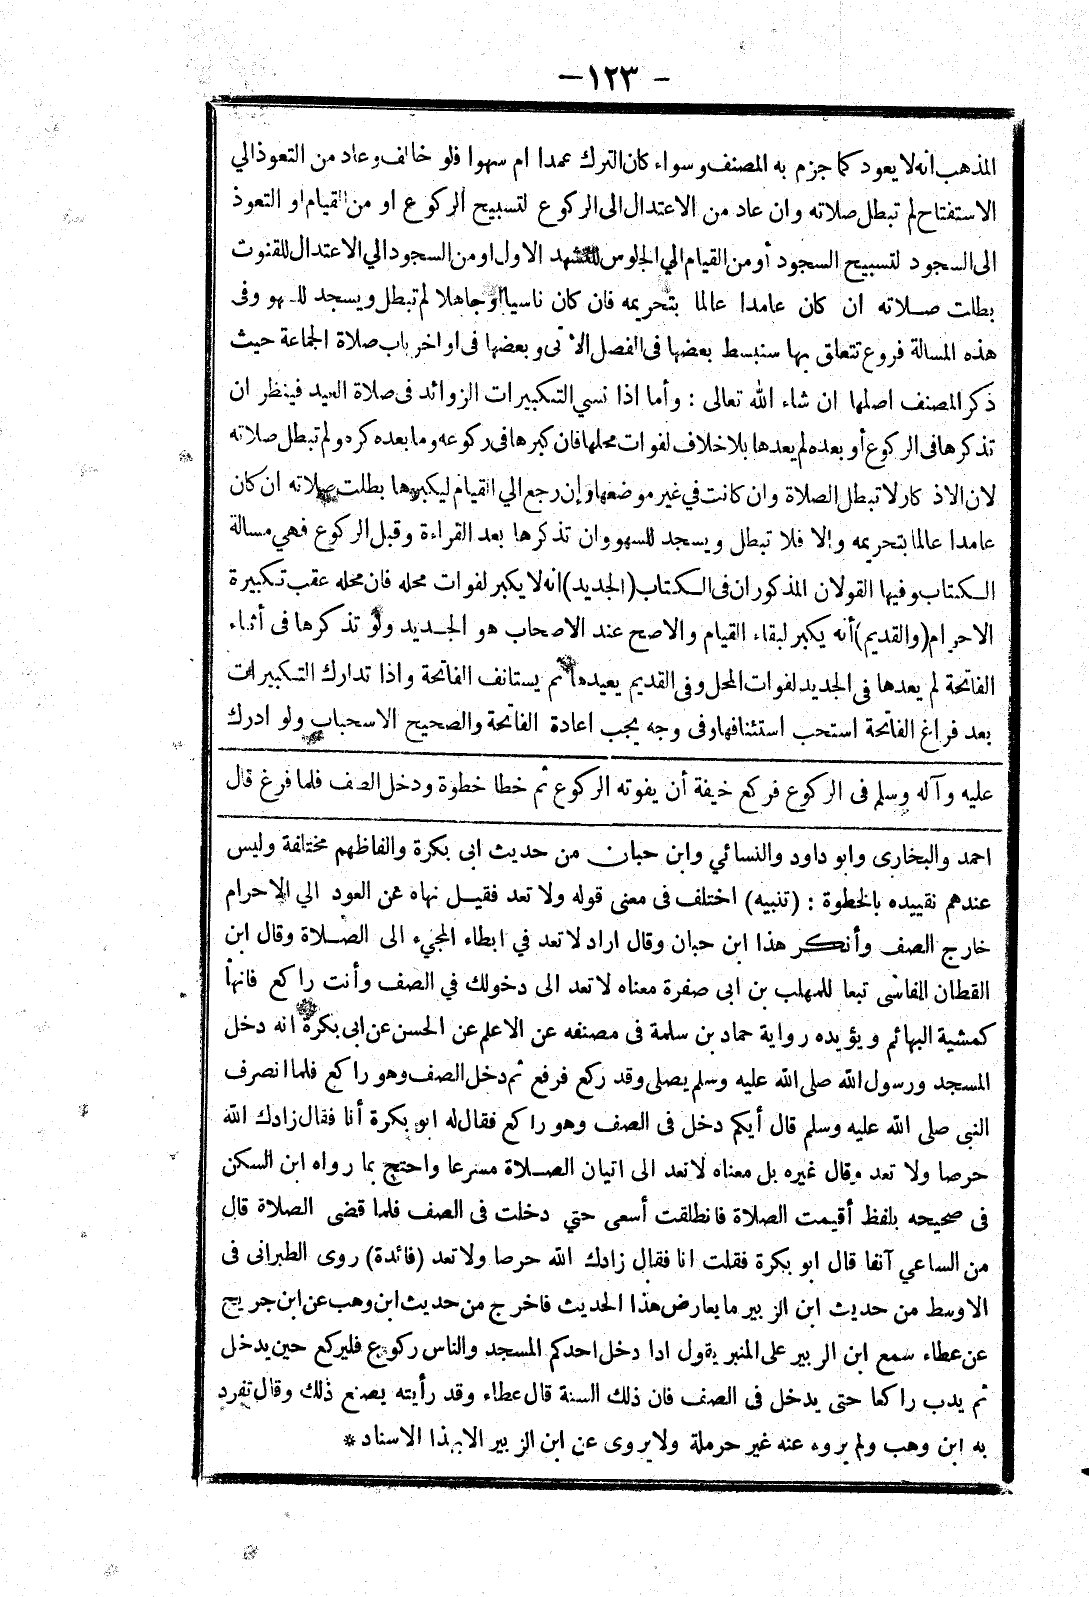 - ١٢٣ -
المذهب انه لا يعود كما جزم به المصنف وسواء كان الترك عمدا ام سهوا فلو خالف وعاد من التعوذ الي
الاستفتاح لم تبطل صلاته وان عاد من الاعتدال الى الركوع لتسبيح الركوع او من القيام او التعوذ
الى السجود لتسبيح السجود أو من القيام الي الجلوس للتشهد الاول او من السجود الي الاعتدال للقنوت
بطلت صلاته ان كان عامدا عالما بتحريمه فان كان ناسيا او جاهلا لم تبطل ويسجد للسهو وفى
هذه المسالة فروع تتعلق بها سنبسط بعضها فى الفصل الآتى وبعضها فى اواخر باب صلاة الجماعة حيث
ذكر المصنف اصلها ان شاء الله تعالى : وأما اذا نسي التكبيرات الزوائد فى صلاة العيد فينظر ان
تذكرها فى الركوع أو بعده لم يعدها بلا خلاف لفوات محلها فان كبرها فى ركوعه وما بعده كره ولم تبطل صلاته
لان الاذكار لا تبطل الصلاة وان كانت في غير موضعها وإن رجع الي القيام ليكبرها بطلت صلاته ان كان
عامدا عالما بتحريمه وإلا فلا تبطل ويسجد للسهو وان تذكرها بعد القراءة وقبل الركوع فهي مسالة
الكتاب وفيها القولان المذكوران فى الكتاب (الجديد) انه لا يكبر لفوات محله فان محله عقب تكبيرة
الاحرام (والقديم) أنه يكبر لبقاء القيام والاصح عند الاصحاب هو الجديد ولو تذكرها فى أثناء
الفاتحة لم يعدها فى الجديد لفوات المحل وفى القديم يعيدها ثم يستانف الفاتحة واذا تدارك التكبيرات
بعد فراغ الفاتحة استحب استئنافها وفى وجه يجب اعادة الفاتحة والصحيح الاسحباب ولو ادرك
عليه وآله وسلم فى الركوع فركع خيفة أن يفوته الركوع ثم خطا خطوة ودخل الصف فلما فرغ قال
احمد والبخارى وابو داود والنسائي وابن حبان من حديث ابى بكرة والفاظهم مختلفة وليس
عندهم تقييده بالخطوة : (تنبيه) اختلف فى معنى قوله ولا تعد فقيل نهاه عن العود الي الاحرام
خارج الصف وأنكر هذا ابن حبان وقال اراد لا تعد في ابطاء المجيء الى الصلاة وقال ابن
القطان الفاسى تبعا للمهلب بن ابى صفرة معناه لا تعد الى دخولك في الصف وأنت راكع فانها
كمشية البهائم ويؤيده رواية حماد بن سلمة فى مصنفه عن الاعلم عن الحسن عن ابى بكرة انه دخل
المسجد ورسول الله صلى الله عليه وسلم يصلى وقد ركع فرفع ثم دخل الصف وهو راكع فلما انصرف
النبى صلى الله عليه وسلم قال أيكم دخل فى الصف وهو راكع فقال له ابو بكرة أنا فقال زادك الله
حرصا ولا تعد وقال غيره بل معناه لا تعد الى اتيان الصلاة مسرعا واحتج بما رواه ابن السكن
فى صحيحه بلفظ أقيمت الصلاة فانطلقت أسعى حتي دخلت فى الصف فلما قضى الصلاة قال
من الساعي آنفا قال ابو بكرة فقلت انا فقال زادك الله حرصا ولا تعد (فائدة) روى الطبرانى فى
الاوسط من حديث ابن الزبير ما يعارض هذا الحديث فاخرج من حديث ابن وهب عن ابن جريج
عن عطاء سمع ابن الزبير على المنبر يقول اذا دخل احدكم المسجد والناس ركوع فليركع حين يدخل
ثم يدب راكعا حتى يدخل فى الصف فان ذلك السنة قال عطاء وقد رأيته يصنع ذلك وقال تفرد
به ابن وهب ولم يروه عنه غير حرملة ولا يروى عن ابن الزبير الا بهذا الاسناد *